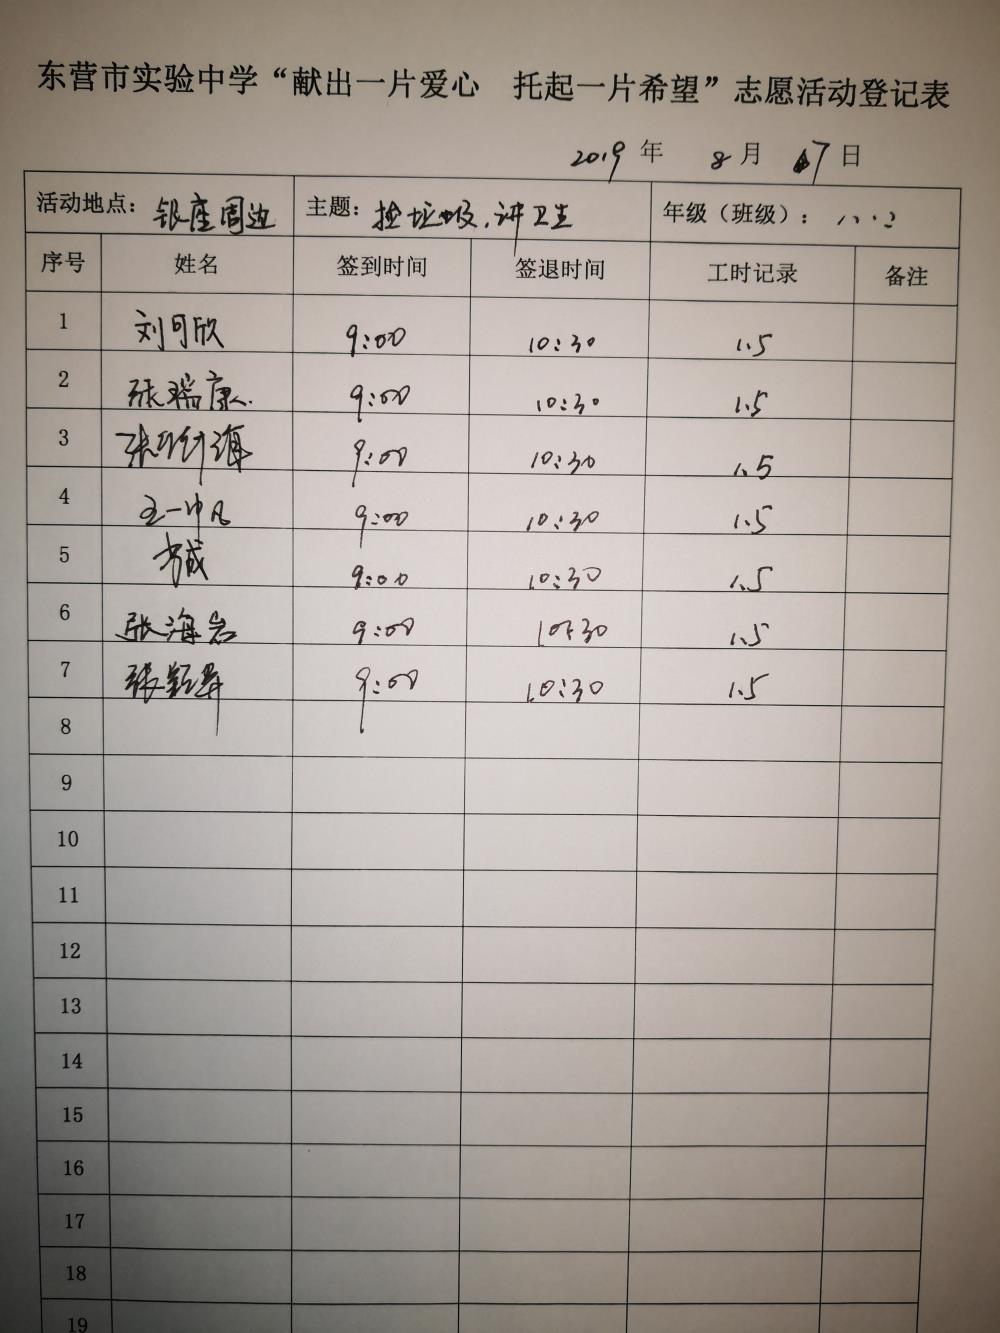 东营市实验中学“献出一片爱心 托起一片希望”志愿活动登记表
2019 年 8 月 17 日
活动地点： 银座周边 主题： 捡垃圾，讲卫生 年级（班级）： 八·二
序号 姓名 签到时间 签退时间 工时记录 备注
1 刘可欣 9:00 10:30 1.5
2 张瑞康 9:00 10:30 1.5
3 张 海 9:00 10:30 1.5
4 王一中凡 9:00 10:30 1.5
5 9:00 10:30 1.5
6 张海岩 9:00 10:30 1.5
7 张 9:00 10:30 1.5
8
9
10
11
12
13
14
15
16
17
18
19